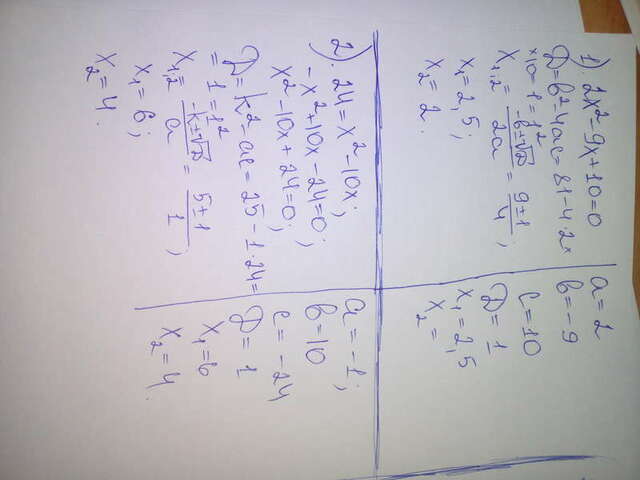 1). 2x²-9x+10=0
D=b²-4ac=81-4·2×
×10=1=1²
x₁,₂= -b±√D / 2a = 9±1 / 4 ;
x₁=2,5;
x₂=2.
a=2
b=-9
c=10
D=1
x₁=2,5
x₂=
2). 24=x²-10x;
-x²+10x-24=0;
x²-10x+24=0;
D=k²-ac=25-1·24=
=1=1²
x₁,₂= -k±√D / a = 5±1 / 1 ;
x₁=6;
x₂=4.
a=-1;
b=10
c=-24
D=1
x₁=6
x₂=4.